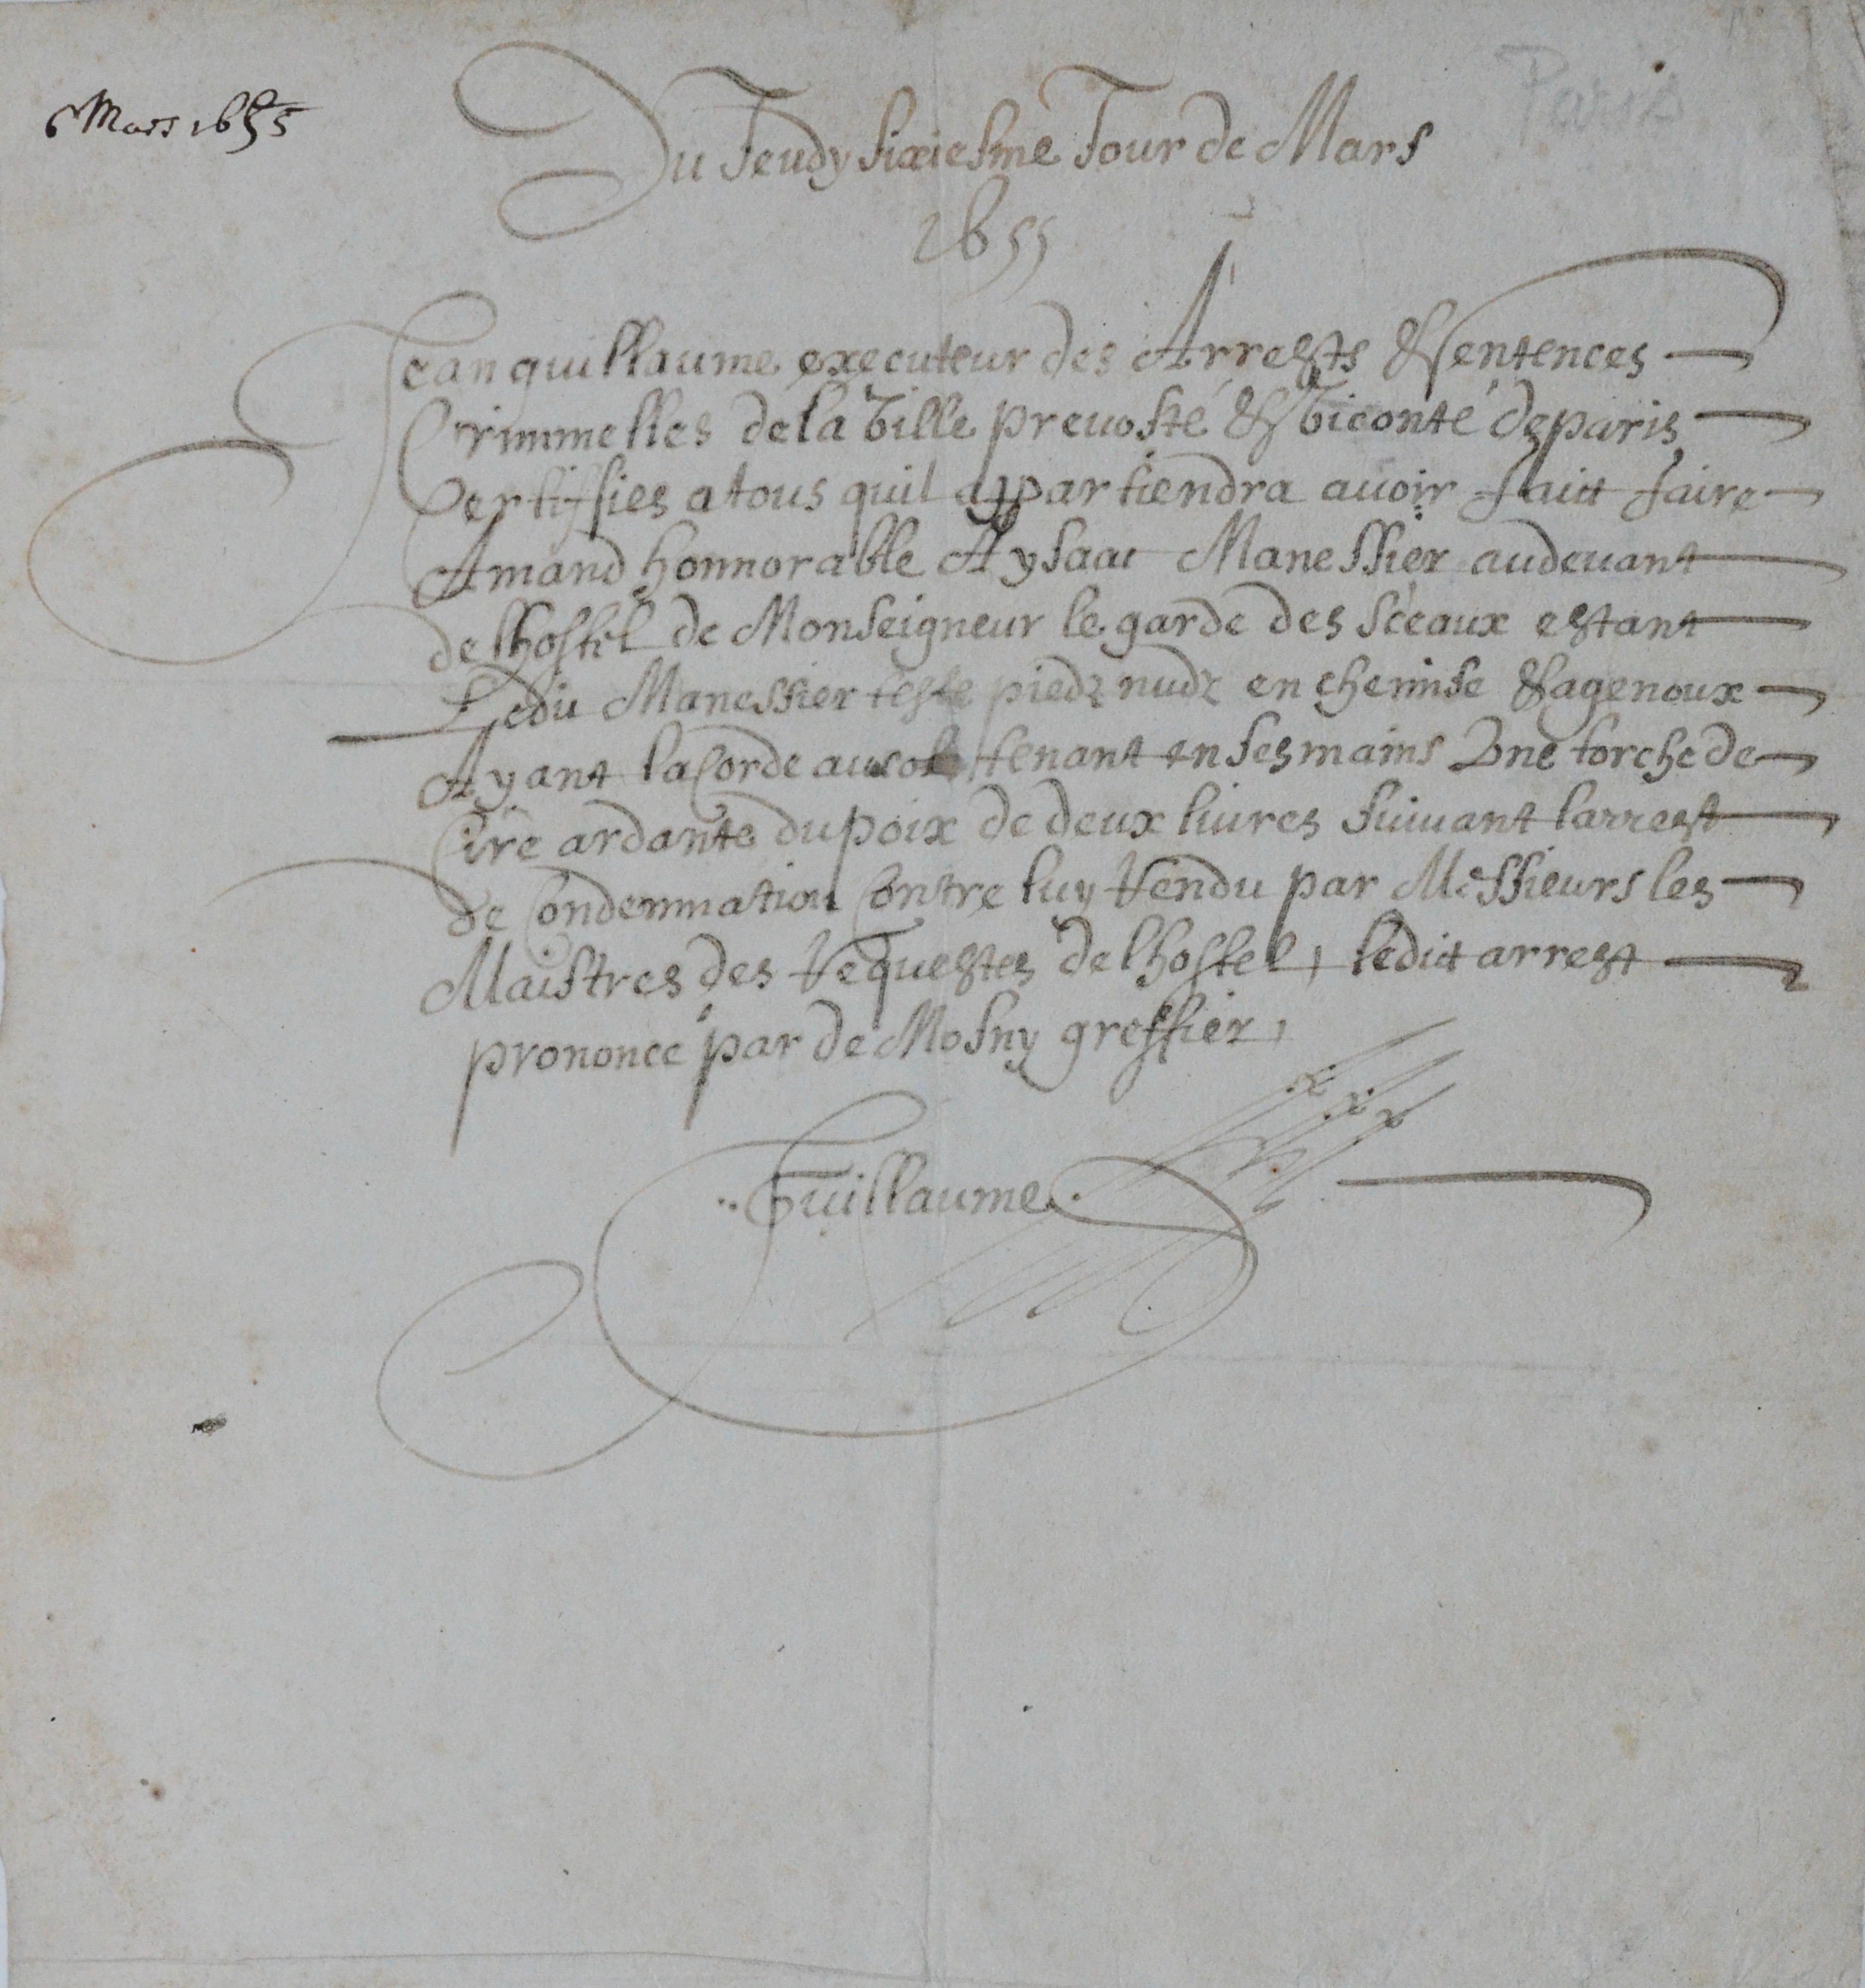 6 Mars 1655
Paris
Du Jeudy sixiesme Jour de Mars
1655
Jean guillaume executeur des Arrests & Sentences
Criminelles de la Ville prevosté & Viconté de paris
Certiffies a tous quil appartiendra avoir faict faire
Amand honnorable A ysaac Manessier audevant
de lhostel de Monseigneur le garde des Sceaux estant
Ledit Manessier teste piedz nudz en chemise & agenoux
Ayant la Corde au col tenant en ses mains Une torche de
Cire ardante du poix de deux livres suivant larrest
de Condemnation Contre luy Rendu par Messieurs les
Maistres des Requestes de lhostel, ledict arrest
prononcé par de Mosny greffier,
Guillaume